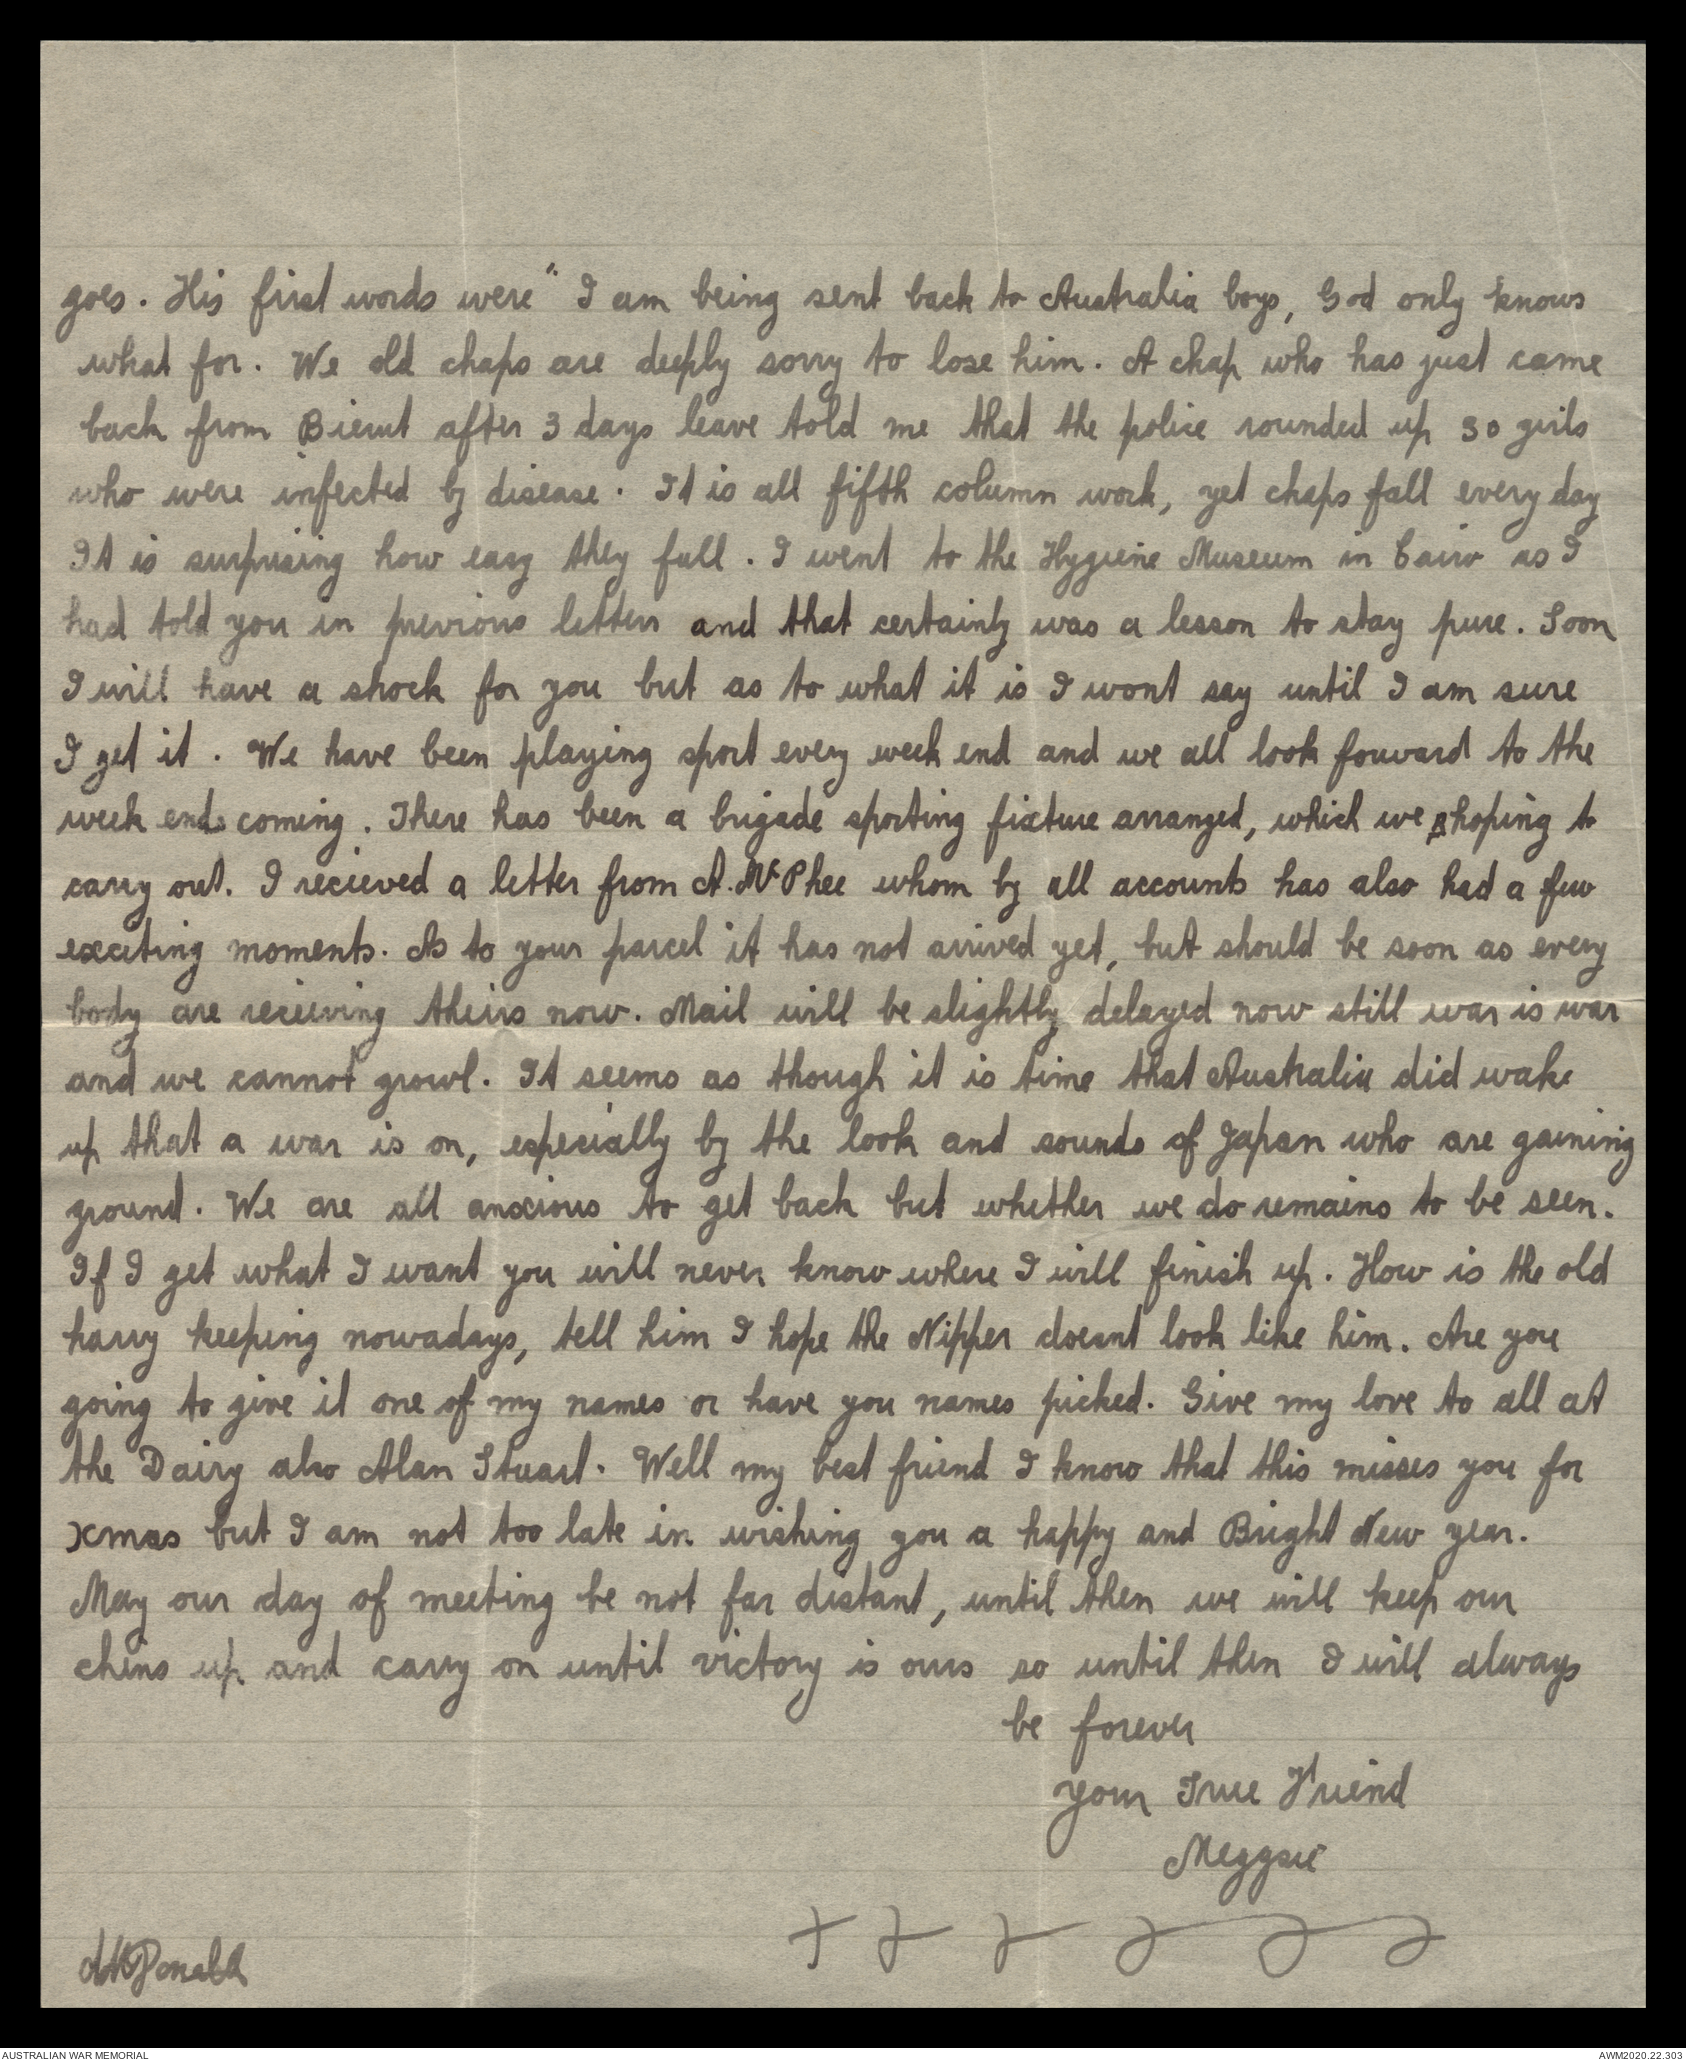 goes. His first words were " I am being sent back to Australia boys, God only knows
what for. We old chaps are deeply sorry to lose him. A chap who has just came
back from Bierut after 3 days leave told me that the police rounded up 30 girls
who were infected by disease. It is all fifth column work, yet chaps fall every day
It is surprising how easy they fall. I went to the Hygeine Museum in Cairo as I
had told you in previous letters and that certainly was a lesson to stay pure. Soon
I will have a shock for you but as to what it is I wont say until I am sure
I get it. We have been playing sport every week end and we all look forward to the
week ends coming. There has been a brigade sporting fixture arranged, which we hoping to
carry out. I recieved a letter from A. McPhee whom by all accounts has also had a few
exciting moments. As to your parcel it has not arrived yet, but should be soon as every
body are recieving theirs now. Mail will be slightly delayed now still war is war
and we cannot growl. It seems as though it is time that Australia did wake
up that a war is on, especially by the look and sounds of Japan who are gaining
ground. We are all anxious to get back but whether we do remains to be seen.
If I get what I want you will never know where I will finish up. How is the old
harry keeping nowadays, tell him I hope the Nipper doesnt look like him. Are you
going to give it one of my names or have you names picked. Give my love to all at
the Dairy also Alan Stuart. Well my best friend I know that this misses you for
Xmas but I am not too late in wishing you a happy and Bright New year.
May our day of meeting be not far distant, until then we will keep our
chins up and carry on until victory is ours so until then I will always
be forever
your True Friend
Meggsie
AUSTRALIAN WAR MEMORIAL
AWM2020.22.303